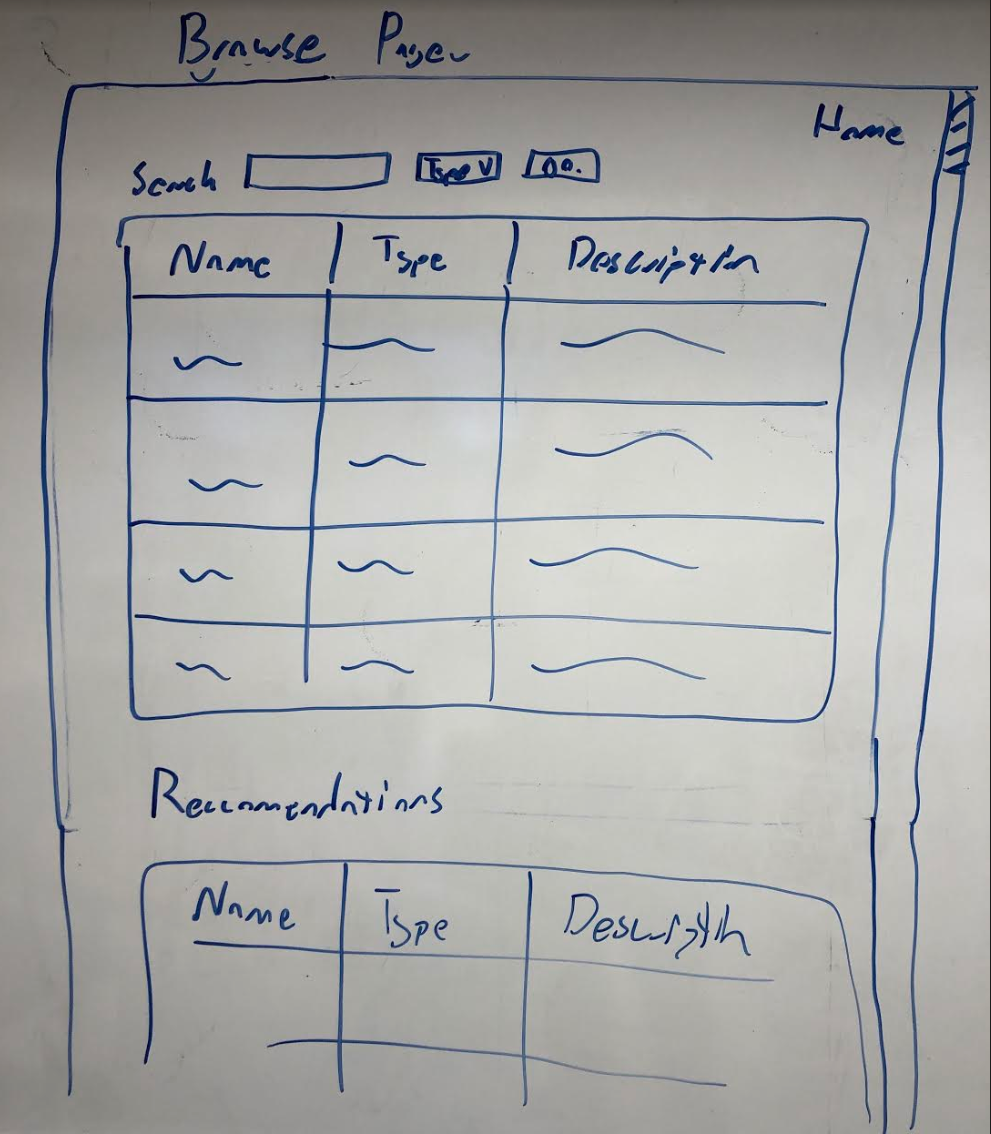 Browse Page
Home
Search Type V Go.
Name Type Description
Reccomendations
Name Type Description